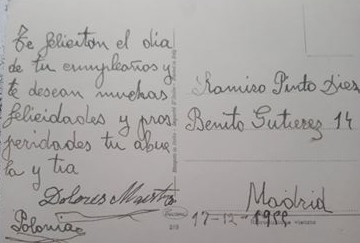 Te felicitan el dia
de tu cumpleaños y
te desean muchas
felicidades y pros
peridades tu abue
la y tia
Dolores
Polonia
Ramiro Pinto Diez
Benito Gutierez 14
Madrid
17-12-